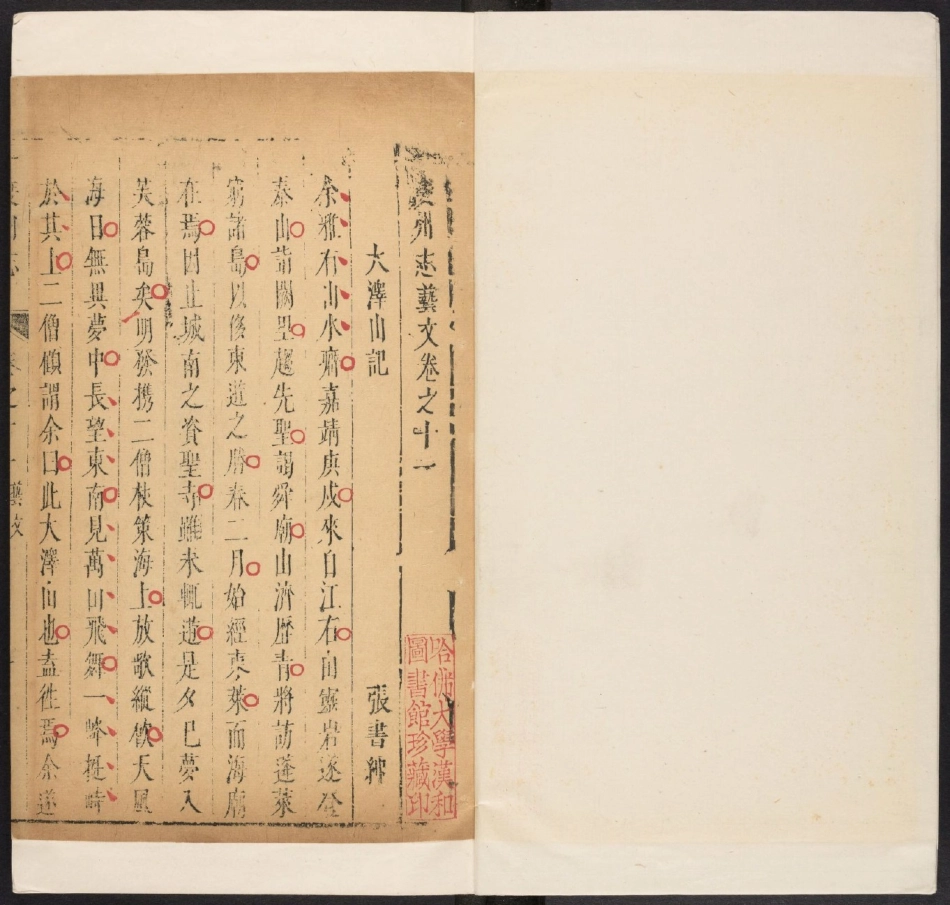 州志藝文卷之十一
大澤山記
張書紳
余雅右山水癖嘉靖庚戌來自江右由靈岩逐登
泰山詣闕里趨先聖謁舜廟由濟歷青將訪蓬萊
窮諸島以修東道之勝春二月始經東萊而海廟
在焉因止城南之資聖寺雖未輒造是夕已夢入
芙蓉島矣明發携二僧杖策海上放歌縱飲天風
海日無異夢中長望東南見萬山飛舞一峰挺峙
於其上二僧傾謂余曰此大澤山也盍徃焉余遂
志 卷之十一 藝文
哈佛大學漢和
圖書館珍藏印